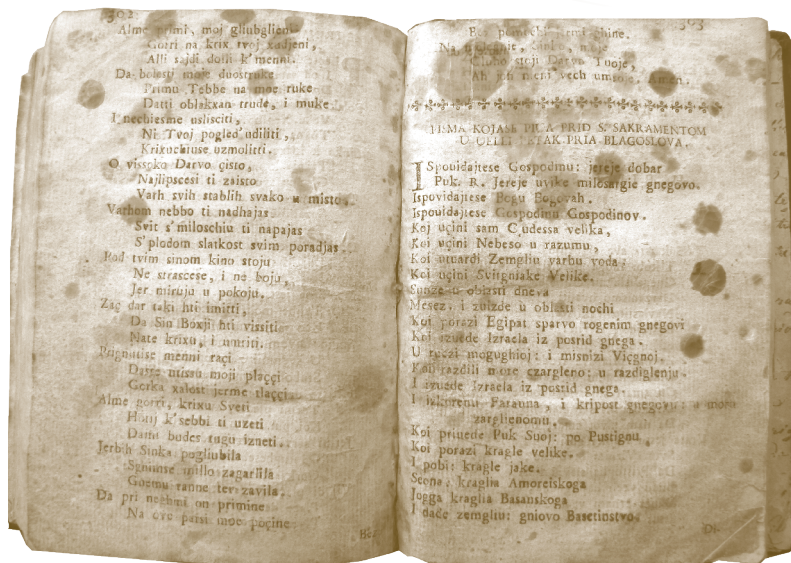 302.
Alme primi, moj gliublgieni
Gorri na krix tvoj xadjeni,
Alli sajdi dolli k'menni.
Da bolesti moje duostruke
Primu Tebbe na moe ruke
Datti oblakxan trude, i muke
I nechiesme uslisciti,
Ni Tvoj pogled' udiliti,
Krixuchiuse uzmolitti.
O vissoko Darvo çisto,
Najlipscesi ti zaisto
Varh svih stablih svako u misto.
Varhom nebbo ti nadhajas
Svit s'miloschiu ti napajas
S'plodom slatkost svim poradjas.
Pod tvim sinom kino stoju
Ne strascese, i ne boju,
Jer miruju u pokoju.
Zaç dar taki hti imitti,
Da Sin Boxji hti vissiti
Nate krixu, i umriti.
Prignutise menni raçi
Dasse nissu moji plaççi
Gorka xalost jerme tlaççi.
Alme gorri, krixu Sveti
Hotij k'sebbi ti uzeti
Datni budes tugu izneti.
Jerbih Sinka pogliubila
Sghimse millo zagarlila
Goemu ranne ter zavila.
Da pri neghmi on primine
Na ove parsi moe poçine
Bez
303
Bez pomochi kemi ghine.
Na, moje
Glubo stoji Darvo Tvoje,
Ah joti meni vech umroje. Amen.
PISMA KOJASE PIVA PRID S. SAKRAMENTOM
U VELI PETAK PRIA BLAGOSLOVA.
I Spouidajtese Gospodmu: jereje dobar
Puk. R. Jereje uvike milosargie gnegovo.
Ispovidajtese Bogu Bogovah.
Ispouidajtese Gospodinu Gospodinov.
Koj uçini sam Çudessa velika,
Koi uçini Nebeso u razumu,
Koi utuardi Zemgliu varhu voda:
Koi uçini Svitgniake Velike.
Sunze u oblasti dneva
Mesez, i zuizde u oblasti nochi
Koi porazi Egipat sparvo rogenim gnegovi
Koi izuede Izraela iz posrid gnega.
U ruczi mogughioj: i misnizi Viçgnoj.
Koji razdili more czargleno: u razdiglenju.
I izuede Izraela iz posrid gnega.
I iskorenu Farauna, i kripost gnegovu: u moru
zarglienomu.
Koi priuede Puk Suoj: po Pustignu,
Koi porazi kragle velike.
I pobi: kragle jake.
Seona: kraglia Amoreiskoga
Jogga kraglia Basanskoga
I dade zemgliu: gniovo Basctinstvo.
Di-